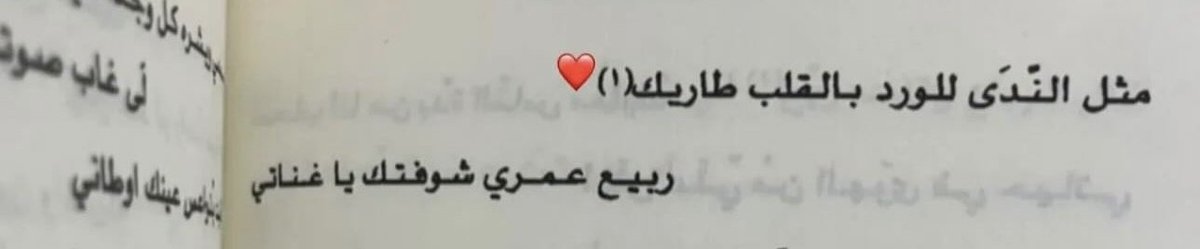 مثل النّدَى للورد بالقلب طاريك(١)❤️
ربيع عمري شوفتك يا غناتي
كل
لى غاب صوت
عينك اوطاني